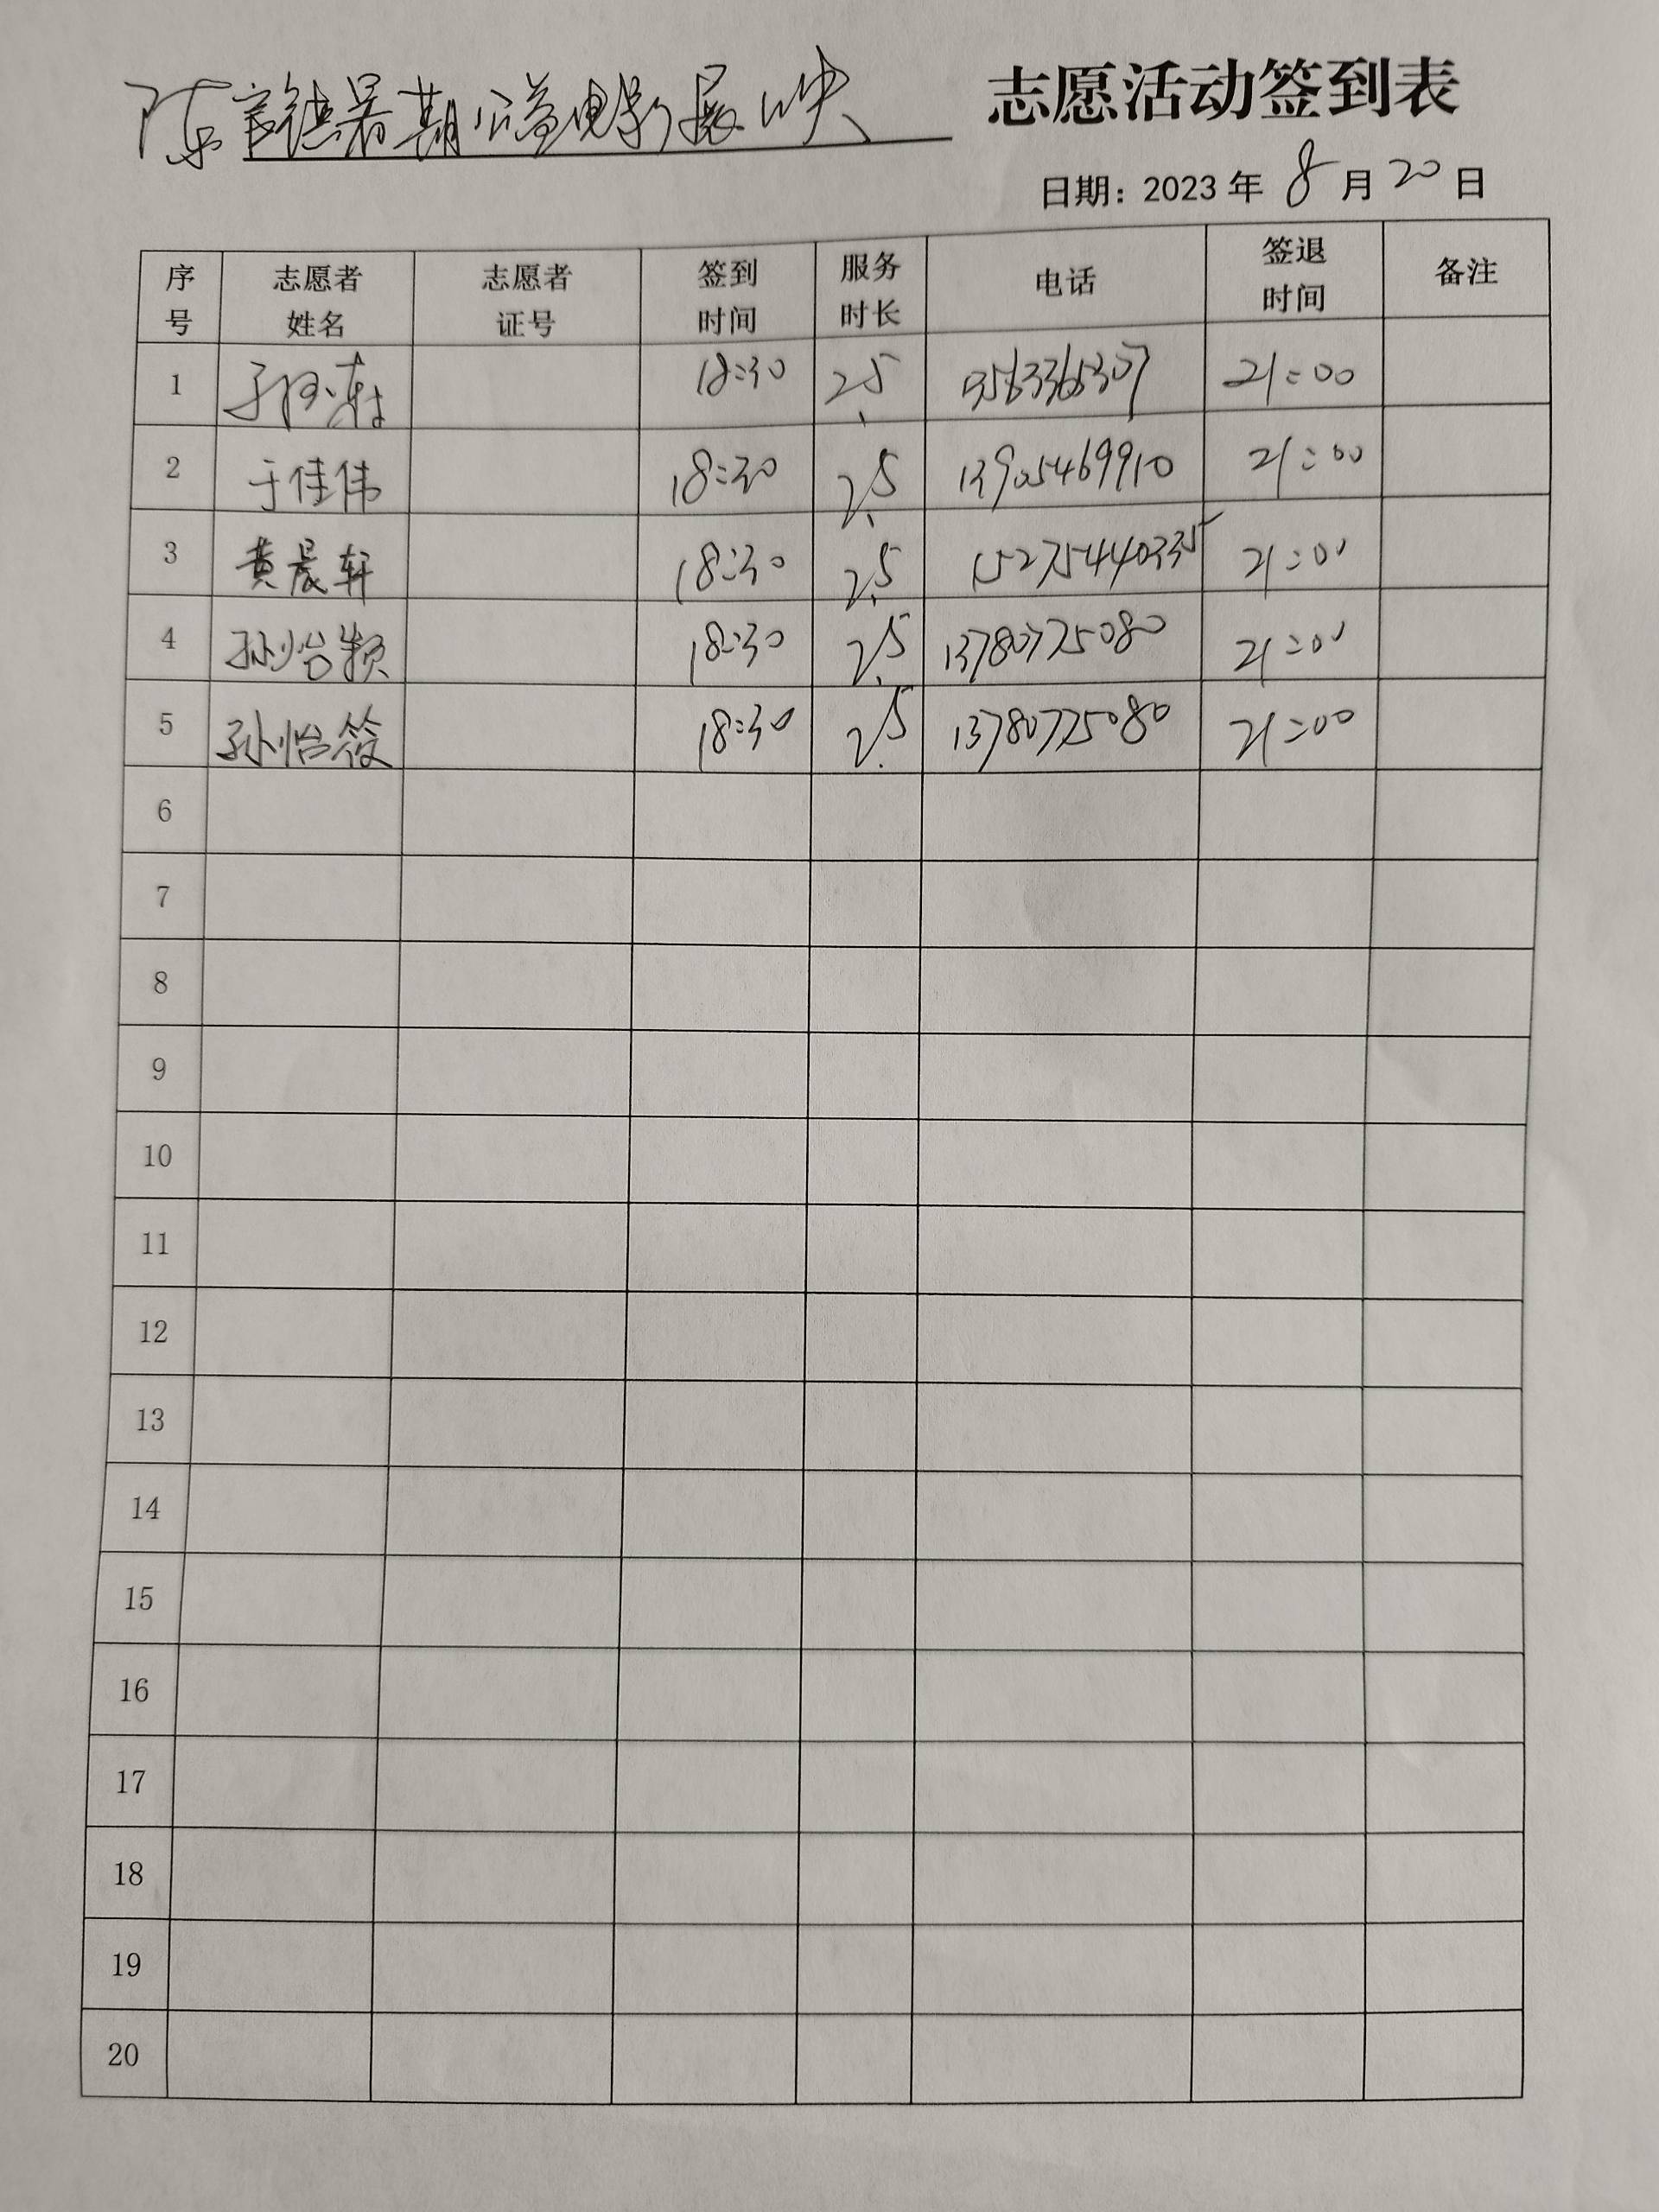 陈官镇暑期公益电影展映 志愿活动签到表
日期：2023 年 8 月 20 日
序号 志愿者姓名 志愿者证号 签到时间 服务时长 电话 签退时间 备注
1 18:30 2.5 21:00
2 于佳伟 18:30 2.5 13905469910 21:00
3 黄晨轩 18:30 2.5 15275440335 21:00
4 孙怡颖 18:30 2.5 13780775080 21:00
5 孙怡筱 18:30 2.5 13780775080 21:00
6
7
8
9
10
11
12
13
14
15
16
17
18
19
20